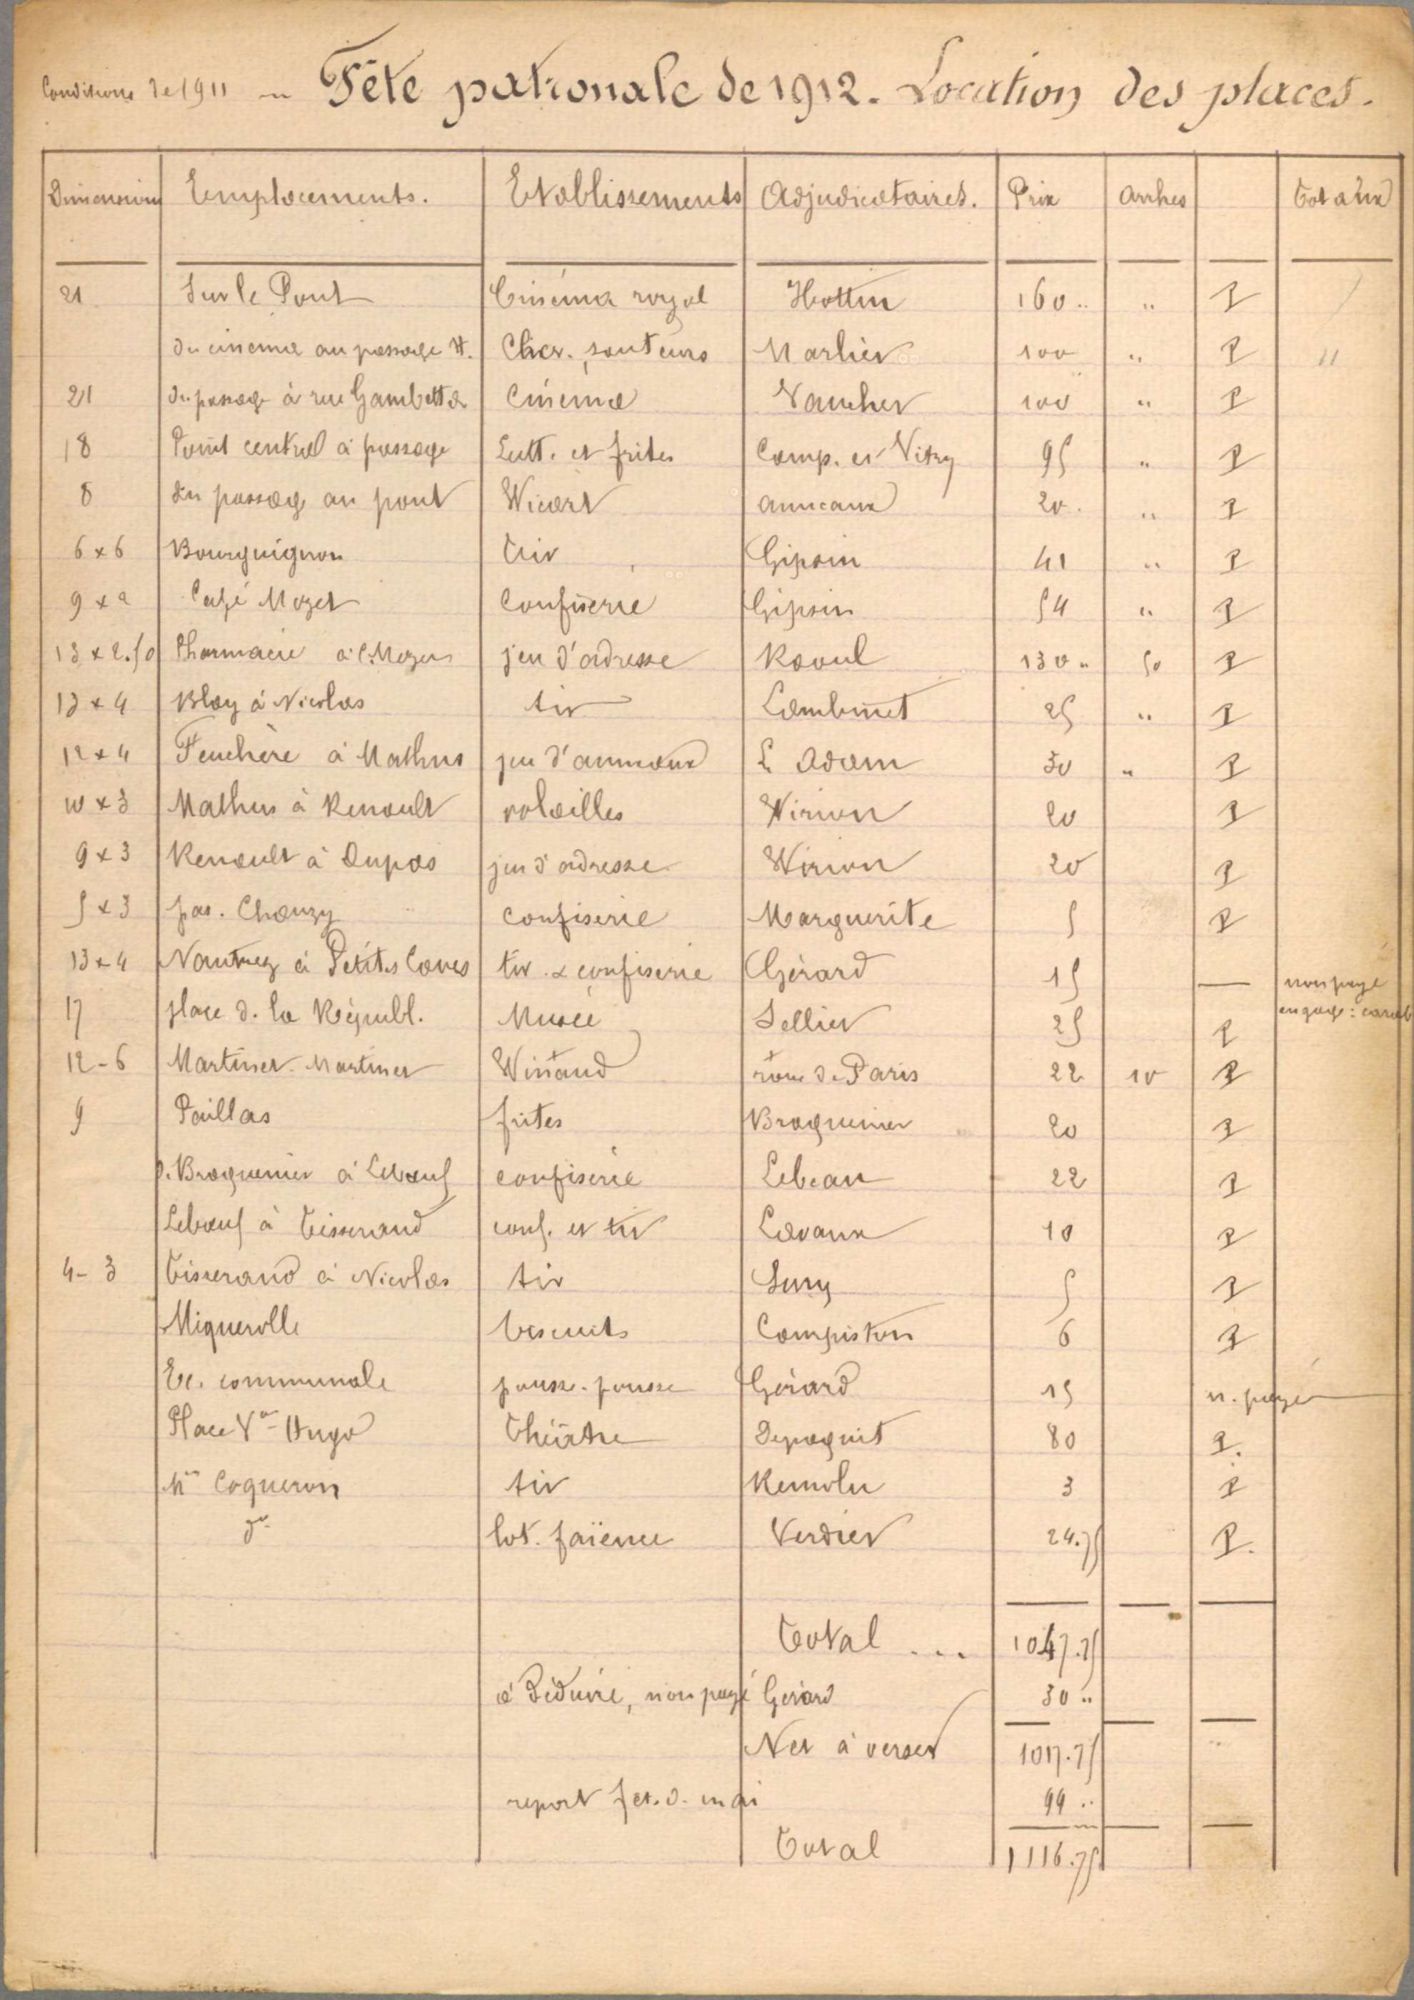 Conditions de 1911 — Fête patronale de 1912. Location des places.
Dimensions Emplacements. Etablissements Adjudicataires. Prix Arrhes Totaux
21 Sur le Pont Cinéma royal Hottin 160 .. " P
du cinéma au passage H. Chev. sauteurs Marlier 100 " P "
21 du passage à rue Gambetta Cinéma Vaucher 100 " P
18 Point central à passage Lutt. et frites Camp. et Vitry 95 " P
8 du passage au pont Wicart anneaux 20 " P
6 x 6 Bourguignon Tir Gipsin 41 " P
9 x Café Mozet Confiserie Gipsin 54 " P
13 x 2.50 Pharmacie à C. jeu d'adresse Raoul 130 " 50 P
12 x 4 Blay à Nicolas tir Lambinet 25 " P
12 x 4 Feuchère à Mathus jeu d'anneaux L Adam 30 " P
10 x 3 Mathus à Renault volailles Wirion 20 P
9 x 3 Renault à Dupas jeu d'adresse Wirion 20 P
5 x 3 pas. Chanzy confiserie Marguerite 5 P
13 x 4 à Petites Caves tir & confiserie Gérard 15 — non payé
17 place d. la Républ. Musée Sellier 25 P engagé :
12 - 6 Martinet Martinet Wintand rte de Paris 22 10 P
9 Paillas frites Braquenier 20 P
d. Braquenier à Lebœuf confiserie Lebeau 22 P
Lebœuf à Tisserand conf. et tir Lavaux 10 P
4 - 3 Tisserand à Nicolas tir Suny 5 P
Miquerolle biscuits Campiston 6 P
Ec. communale pousse-pousse Gérard 15 n. payé
Place Vor Hugo Théâtre Depaquit 80 P.
Mme Coqueron tir Remolu 3 P
do lot. faïence Verdier 24.75 P.
Total ... 1047.75
à déduire, non payé Gérard 30 "
Net à verser 1017.75
report fet. d. mai 99 ..
Total 1116.75